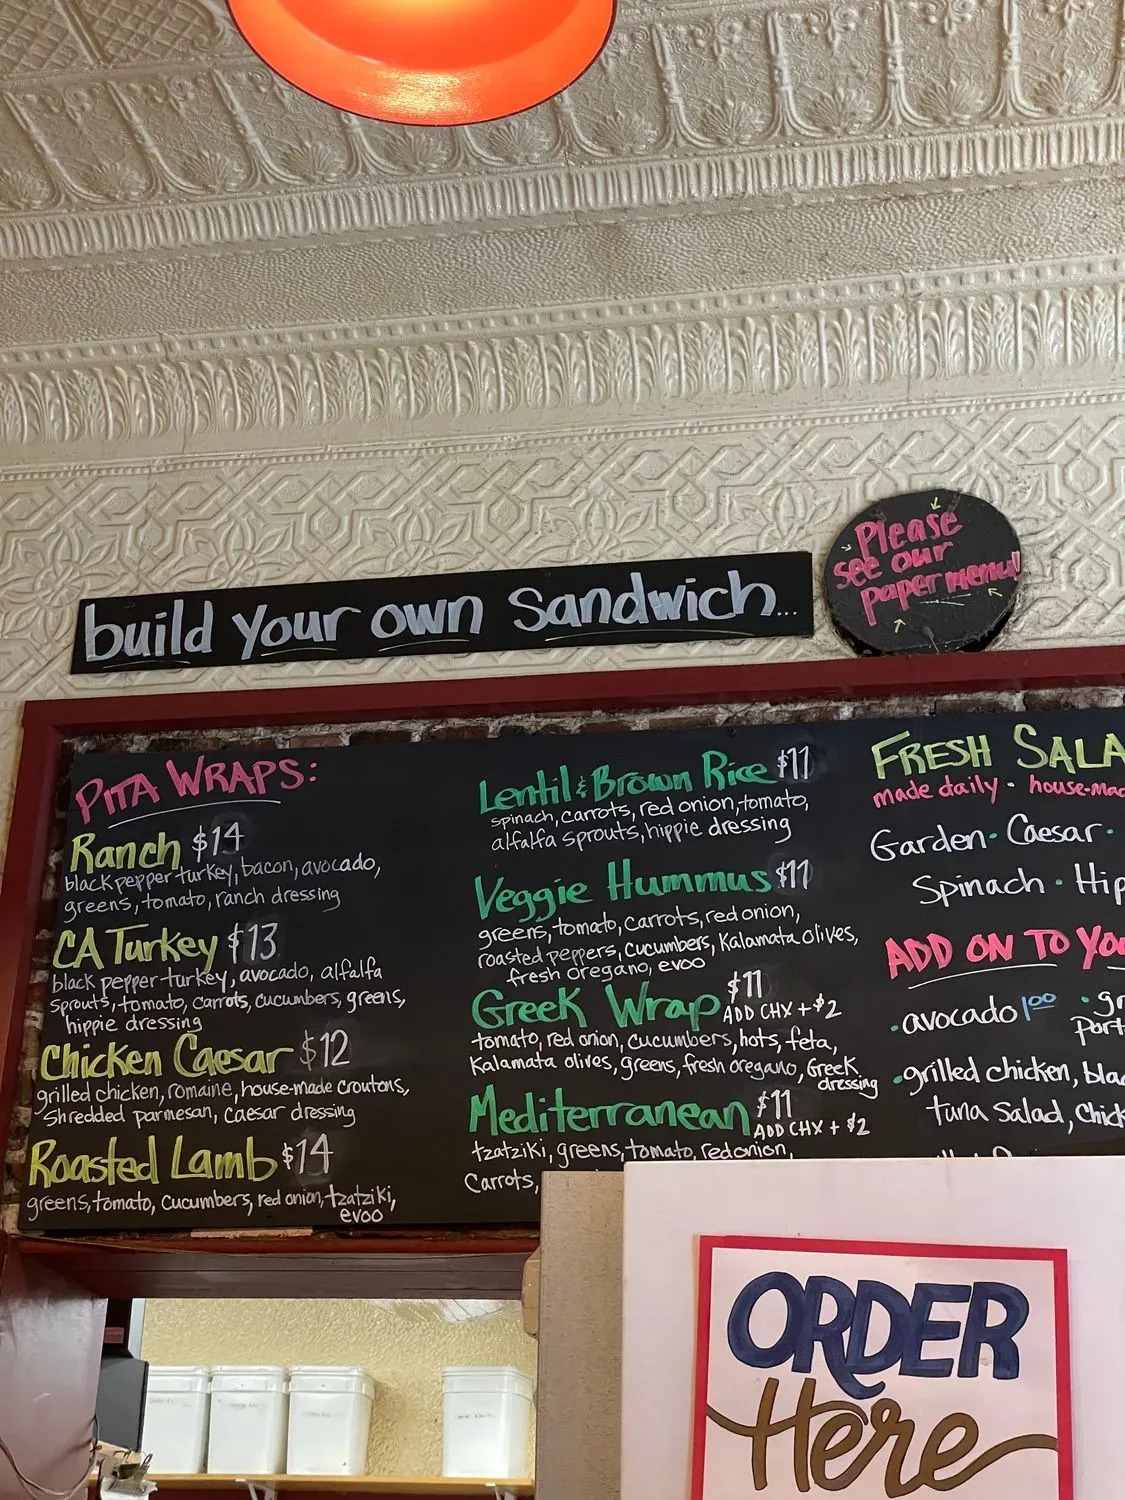 build your own sandwich...
Please
see our
paper menu!
PITA WRAPS:
Ranch $14
black pepper turkey, bacon, avocado,
greens, tomato, ranch dressing
CA Turkey $13
black pepper turkey, avocado, alfalfa
sprouts, tomato, carrots, cucumbers, greens,
hippie dressing
Chicken Caesar $12
grilled chicken, romaine, house-made croutons,
Shredded parmesan, caesar dressing
Roasted Lamb $14
greens, tomato, cucumbers, red onion, tzatziki,
evoo
Lentil & Brown Rice $11
spinach, carrots, red onion, tomato,
alfalfa sprouts, hippie dressing
Veggie Hummus $11
greens, tomato, carrots, red onion,
roasted peppers, cucumbers, Kalamata olives,
fresh oregano, evoo
Greek Wrap $11
ADD CHX + $2
tomato, red onion, cucumbers, hots, feta,
Kalamata olives, greens, fresh oregano, Greek
dressing
Mediterranean $11
ADD CHX + $2
tzatziki, greens, tomato, red onion,
Carrots,
FRESH SALA
made daily · house-mad
Garden · Caesar ·
Spinach · Hip
ADD ON TO YOU
· avocado 1.00 · gr
port
· grilled chicken, blac
tuna Salad, Chick
ORDER
Here